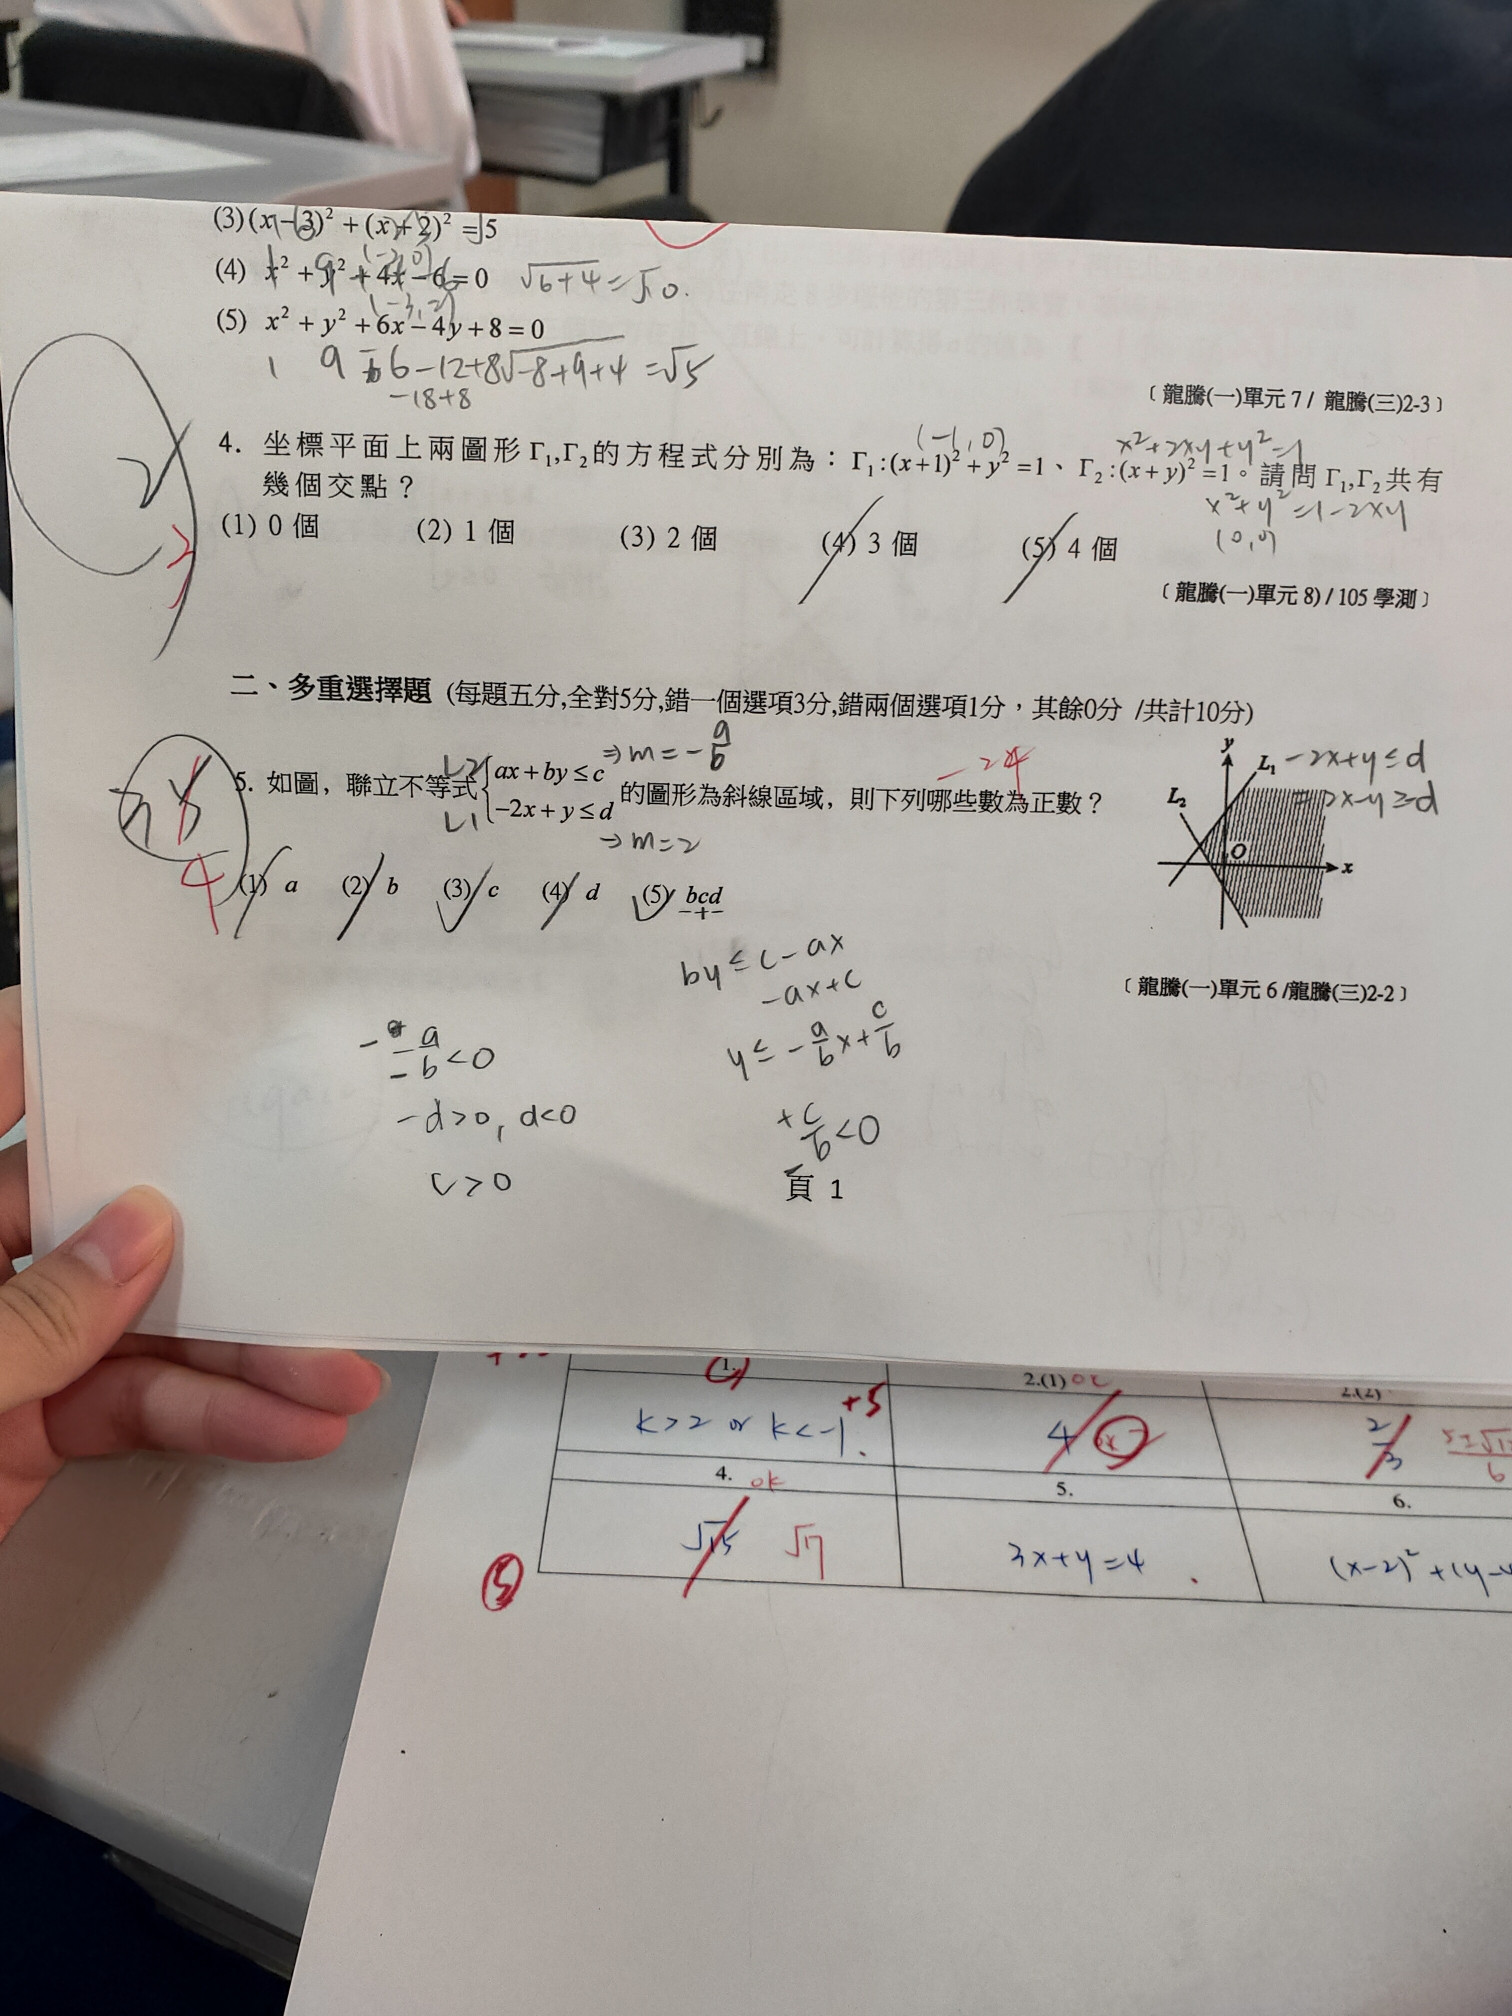 (3) (x-3)² + (x+2)² = 5
(4) x² + y² + 4x - 6 = 0 √6+4 = √10.
(-3, 2)
(5) x² + y² + 6x - 4y + 8 = 0
1 9 6 - 12 + 8 √-8+9+4 = √5
-18+8
〔龍騰(一)單元 7 / 龍騰(三)2-3〕
(-1, 0) x²+2xy+y²=1
4. 坐標平面上兩圖形 Γ₁,Γ₂ 的方程式分別為：Γ₁:(x+1)² + y² =1、Γ₂:(x+y)² =1。請問 Γ₁,Γ₂ 共有
幾個交點？ x²+y²=1-2xy
(1) 0 個 (2) 1 個 (3) 2 個 (4) 3 個 (5) 4 個 (0,0)
2
〔龍騰(一)單元 8) / 105 學測〕
二、多重選擇題 (每題五分,全對5分,錯一個選項3分,錯兩個選項1分，其餘0分 /共計10分)
5. 如圖，聯立不等式 { ax + by ≤ c -2x + y ≤ d 的圖形為斜線區域，則下列哪些數為正數？
L2 ⇒ m = -a/b
L1 → m=2
-24
y L₁ -2x+y≤d
L₂
O x
4
(1) a (2) b (3) c (4) d (5) bcd
- + -
by ≤ c - ax
-ax+c
y ≤ -a/b x + c/b
〔龍騰(一)單元 6 /龍騰(三)2-2〕
-d>0, d<0
c/b <0
c > 0
頁 1
1. 2.(1) ok 2.(2)
k>2 or k<-1. +5 4 2/3
4. ok 5. 6.
√15 √17 3x+y=4 (x-2)²+(y-
5